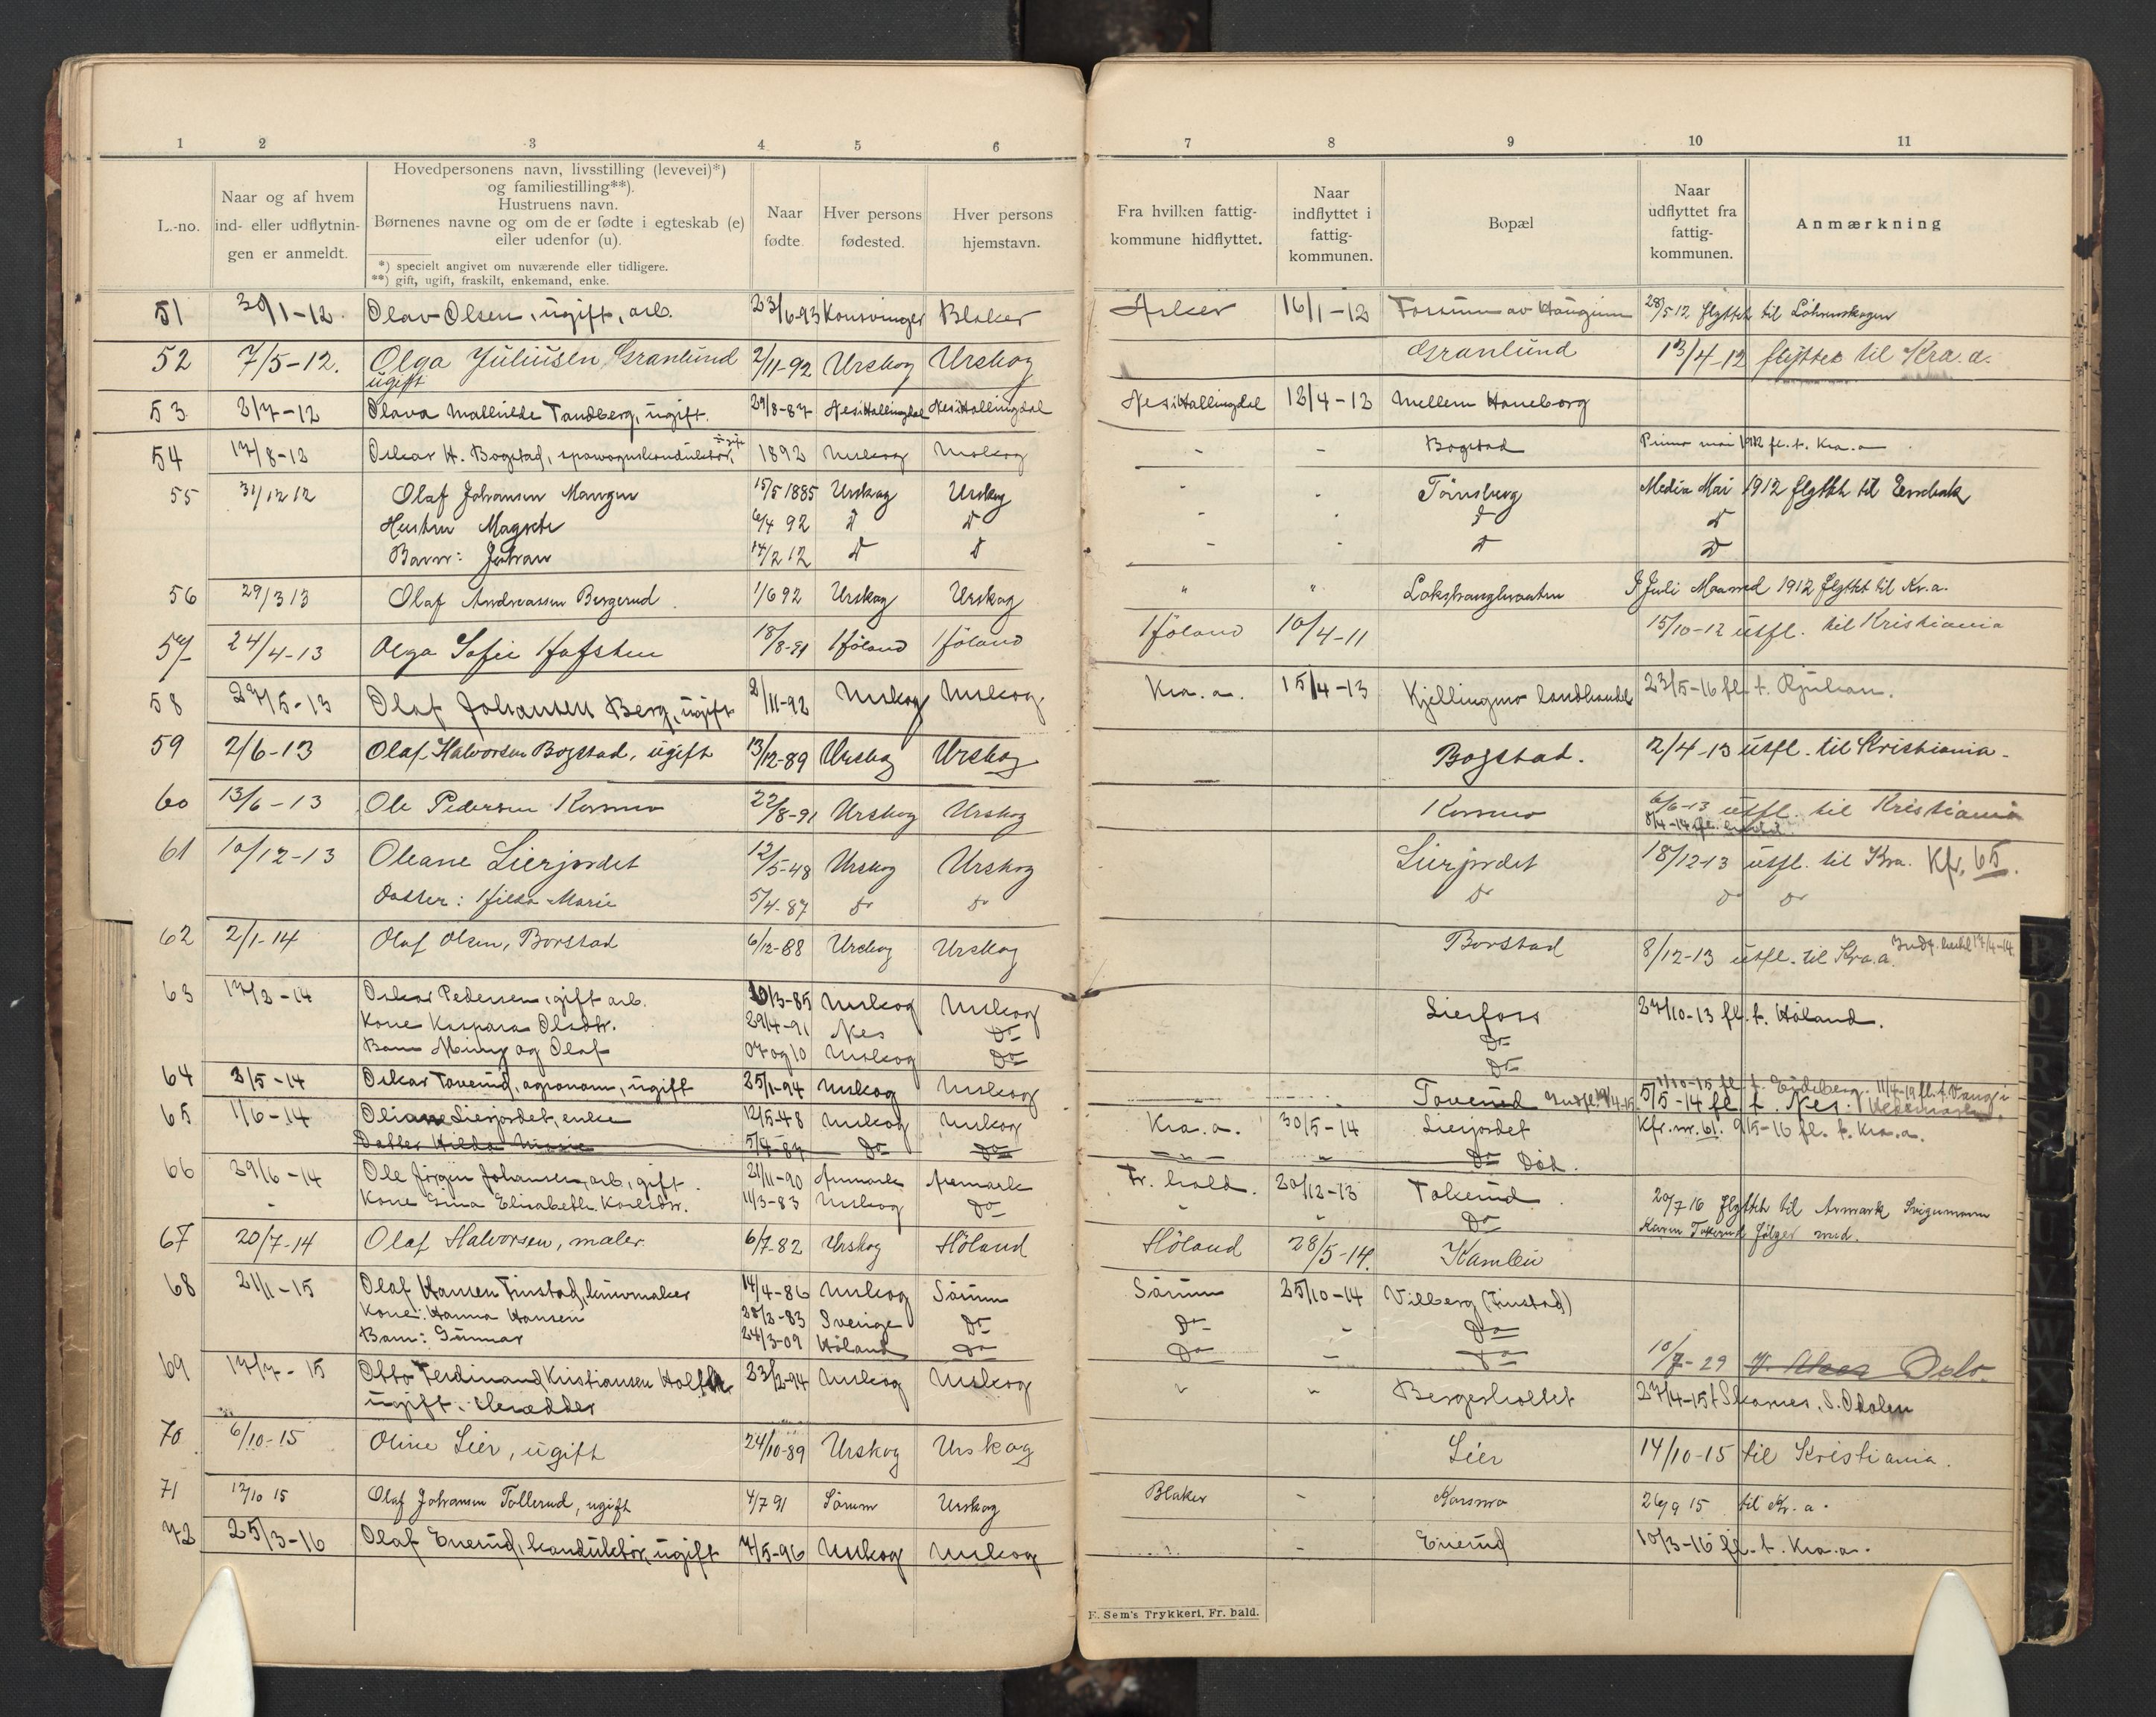 1 2 3 4 5 6
L.-no.
Naar og af hvem
ind- eller udflytnin-
gen er anmeldt.
Hovedpersonens navn, livsstilling (levevei)*)
og familiestilling**).
Hustruens navn.
Børnenes navne og om de er fødte i egteskab (e)
eller udenfor (u).
*) specielt angivet om nuværende eller tidligere.
**) gift, ugift, fraskilt, enkemand, enke.
Naar
fødte
Hver persons
fødested.
Hver persons
hjemstavn.
7 8 9 10 11
Fra hvilken fattig-
kommune hidflyttet.
Naar
indflyttet i
fattig-
kommunen.
Bopæl
Naar
udflyttet fra
fattig-
kommunen.
Anmærkning
51 30/1-12. Olav Olsen, ugift, arb. 23/6-93 Konsvinger Blaker Asker 16/1-12 28/5 12 flyttet til
52 7/5-12. Olga Juliusen Granlund 2/11-92 Urskog Urskog Granlund 13/4-12 flyttet til Kra.a.
ugift
53 Tandberg, ugift. 29/8-87 Nes i Hallingdal Nes i Hallingdal Nes i Hallingdal 12/4-12 Mellem Haneborg
54 17/8-12 Oskar H. Bogstad, ugift 1892 Urskog Urskog - - Bogstad Primo mai 1912 fl. t. Kra.a
55 31/12 12 Olaf Johansen Mangen 15/5 1885 Urskog Urskog - - Tönsberg Medio Mai 1912 flyttet til
Hustru Magrete 6/4 92 D D - - D D
Barn: Johan 14/2 12 D D - - D D
56 29/3 13 Olaf Andreassen Bergerud 1/6 92 Urskog Urskog " " I Juli Maaned 1912 flyttet til Kr.a.
57 24/4-13 Olga Sofie Hafsten 18/8-91 Höland Höland Höland 10/4-11 15/10-12 utfl. til Kristiania
58 27/5-13 Olaf Johansen Berg, ugift 2/11-92 Urskog Urskog. Kra.a. 15/4-13 Kjellingmo landhandel 23/5-16 fl. t. Rjukan.
59 2/6-13 Olaf Halvorsen Bogstad, ugift 13/12-89 Urskog Urskog Bogstad. 2/4-13 utfl. til Kristiania-
60 13/6-13 Ole Pedersen Korsmo 22/8-91 Urskog Urskog Korsmo 6/6-13 utfl. til Kristiania
61 10/12-13 Oleane Lierjordet 12/5-48 Urskog Urskog Lierjordet 18/12-13 utfl. til Kra. Kfr. 65.
Datter: Hilda Marie 5/4-87 Do Do Do Do Do
62 2/1-14 Olaf Olsen, Borstad 6/12-88 Urskog Urskog Borstad 8/12-13 utfl. til Kra.a. Indf. hertil 17/4-14
63 17/2-14 Oskar Pedersen, gift arb. 10/3-85 Urskog Urskog Lierfoss 27/10-13 fl. t. Höland.
Kone Kaspara Olsdtr. 29/4-91 Nes Do Do
Barn og Olaf 07 og 10 Urskog Do Do
64 3/5-14 Oskar Taverud, agronom, ugift 25/1-94 Urskog Urskog Taverud 5/5-14 fl. t. Nes.
65 1/6-14 Oliane Lierjordet, enke 12/5-48 Urskog Urskog Kra.a. 30/5-14 Lierjordet Kfr. nr. 61. 9/5-16 fl. t. Kra.a.
Datter Hilda Marie 5/4-87 Do Do - " - " Do Död.
66 29/6-14 Ole Jörgen Johansen, arb, gift. 21/11-90 Aremark Aremark Fr. hald. 20/12-13 Tokerud 20/7 16 flyttet til Armark Svigermoren
- Kone Gina Elisabeth Karlsdtr. 11/3-83 Urskog Do Do Karen Tokerud fölger med.
67 20/7-14 Olaf Halvorsen, maler. 6/7-82 Urskog Höland Höland 28/5-14. Kamleii
68 21/1-15 Olaf Hansen Finstad, 14/4-86 Urskog Sörum Sörum 25/10-14 Vilberg (Finstad)
Kone: Hanna Hansen 28/2-83 Sverige Do Do - Do
Barn: Gunnar 24/3-09 Höland Do Do - Do 10/7-29 Oslo.
69 17/7-15 Otto Ferdinand Kristiansen 23/2-94 Urskog Urskog " " Bergerholtet 27/4-15 t. Skarnes, S. Odalen
ugift.
70 6/10-15 Oline Lier, ugift 24/10-89 Urskog Urskog Lier 14/10-15 til Kristiania.
71 12/10 15 Olaf Johansen Tollerud, ugift 4/7 91 Sörum Urskog Blaker - Korsmo 26/9 15 til Kr.a.
72 25/3-16 Olaf Enerud, konduktör, ugift 7/5-96 Urskog Urskog - Enerud 10/3-16 fl. t. Kra.a.
E. Sem's Trykkeri, Fr. hald.
P
Q
R
S
T
U
V
W
X
Y